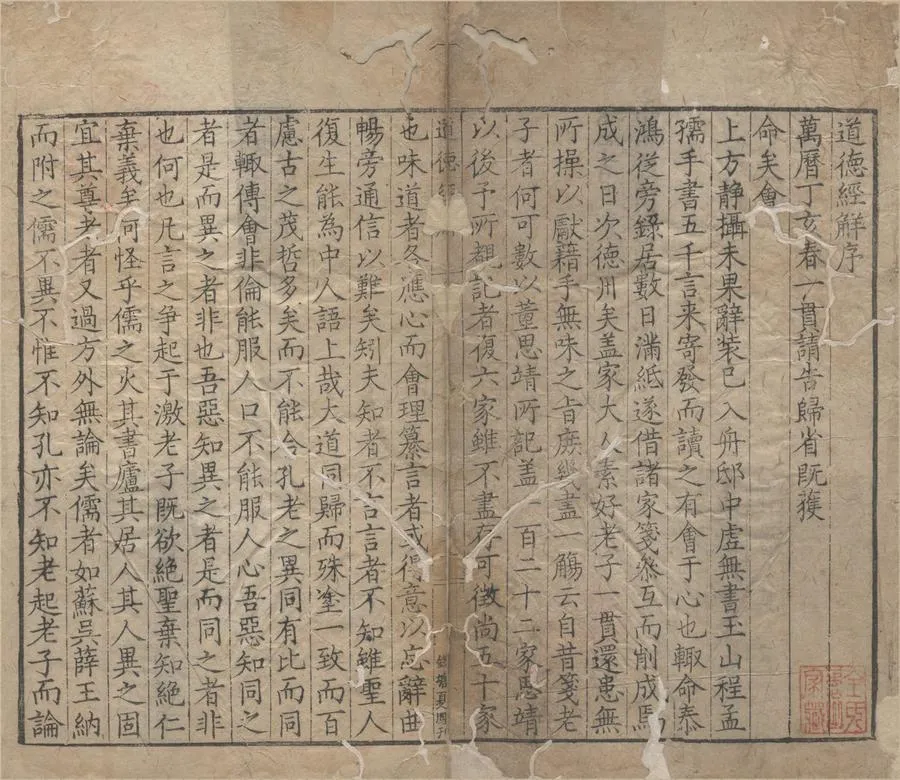 道德經觧序
萬曆丁亥春一貫請告歸省既獲
命矣會
上方静攝未果辭装已入舟邸中虚無書玉山程孟
孺手書五千言来寄發而讀之有會于心也輙命泰
鴻従旁錄居數日滿紙遂借諸家箋叅互而削成焉
成之日次德州矣盖家大人素好老子一貫還患無
所操以獻藉手無味之旨庻幾盡一觴云自昔箋老
子者何可數以董思靖所記盖一百二十二家思靖
以後予所覩記者復六家雖不盡存可徴尚五十家
道德經
錢塘夏周刊
也味道者冬應心而會理纂言者或得意以忘辭曲
暢旁通信以難矣矧夫知者不言言者不知雖聖人
復生能為中人語上哉大道同歸而殊塗一致而百
慮古之茂哲多矣而不能合孔老之異同有比而同
者輙傳會非倫能服人口不能服人心吾惡知同之
者是而異之者非也吾惡知異之者是而同之者非
也何也凡言之争起于激老子既欲絶聖棄知絶仁
棄義矣何怪乎儒之火其書廬其居人其人異之固
宜其尊老者又過方外無論矣儒者如蘇吳薛王納
而附之儒不異不惟不知孔亦不知老起老子而論